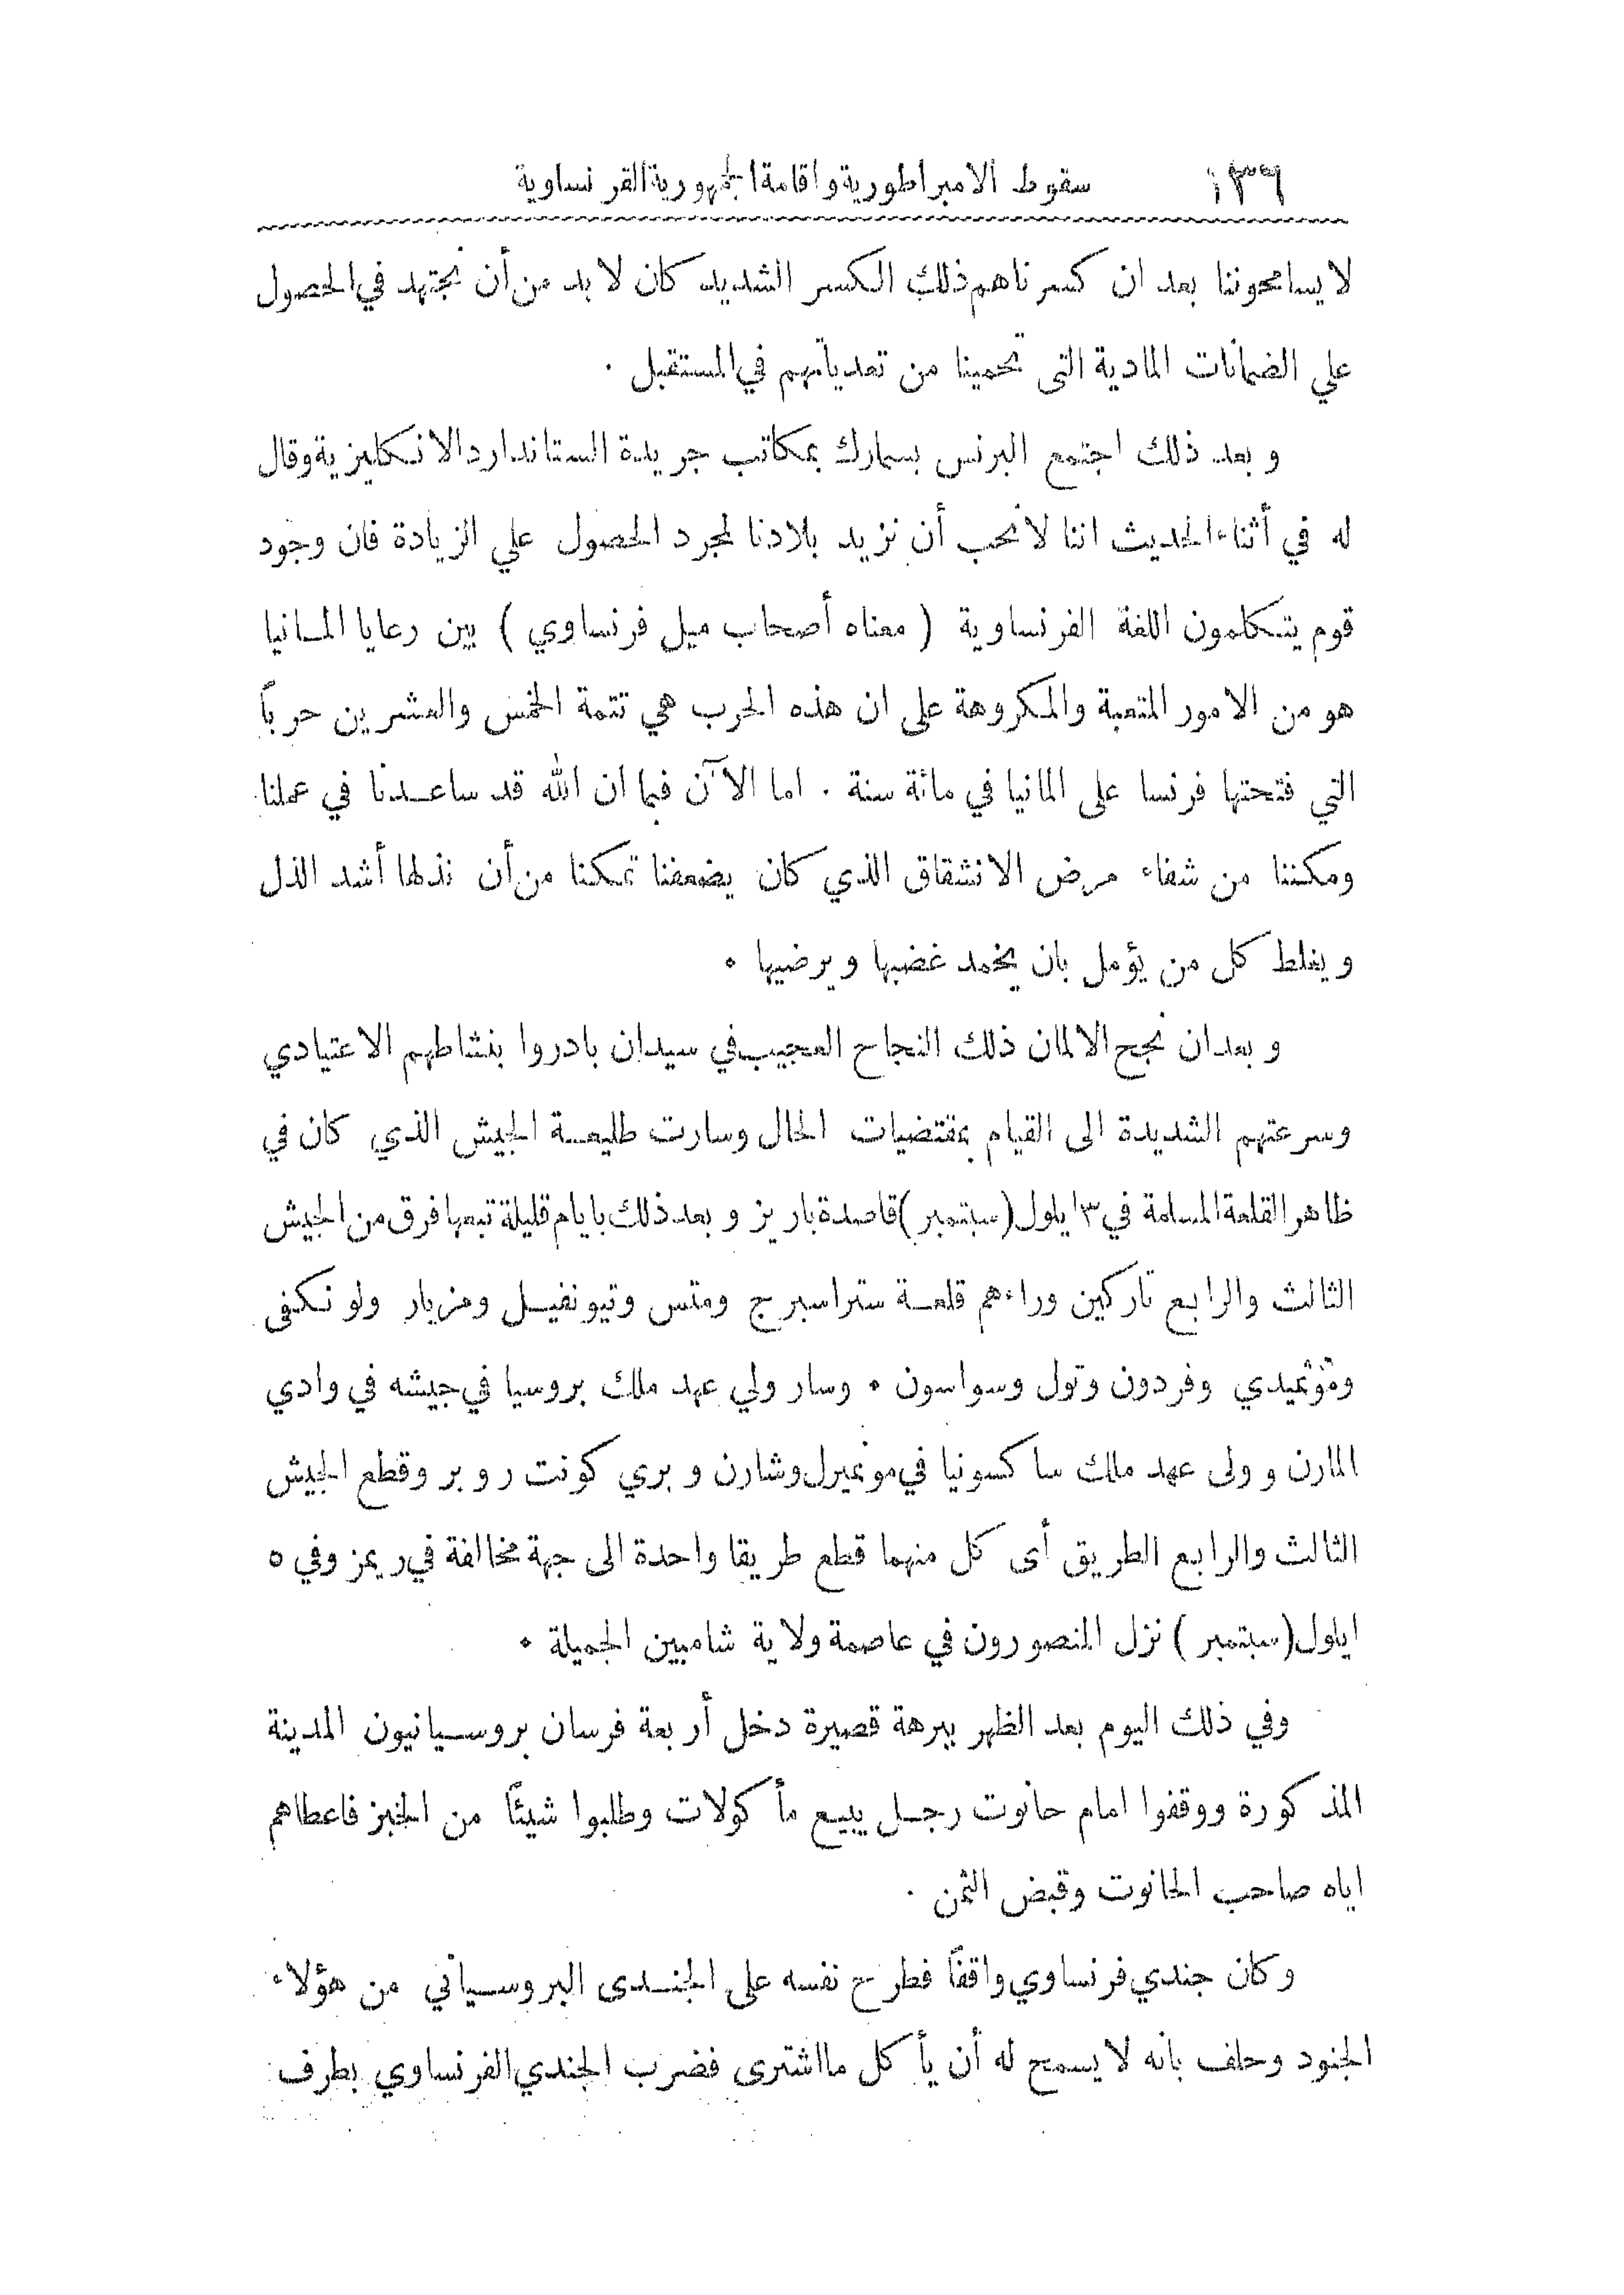 ١٣٦ سقوط الامبراطورية واقامة الجمهورية الفرنساوية
لا يسامحوننا بعد ان كسرناهم ذلك الكسر الشديد كان لا بد من أن نجتهد في الحصول
علي الضمانات المادية التى تحمينا من تعدياتهم في المستقبل .
وبعد ذلك اجتمع البرنس بسمارك بمكاتب جريدة الستاندارد الانكليزية وقال
له في أثناء الحديث اننا لا نحب أن نزيد بلادنا لمجرد الحصول علي الزيادة فان وجود
قوم يتكلمون اللغة الفرنساوية ( معناه أصحاب ميل فرنساوي ) بين رعايا المانيا
هو من الامور المتعبة والمكروهة على ان هذه الحرب هي تتمة الخمس والعشرين حرباً
التي فتحتها فرنسا على المانيا في مائة سنة . اما الآن فبما ان الله قد ساعدنا في عملنا
ومكننا من شفاء مرض الانشقاق الذي كان يضعفنا تمكنا من أن نذلها أشد الذل
ويغلط كل من يؤمل بان يخمد غضبها ويرضيها .
وبعد ان نجح الالمان ذلك النجاح العجيب في سيدان بادروا بنشاطهم الاعتيادي
وسرعتهم الشديدة الى القيام بمقتضيات الحال وسارت طليعة الجيش الذي كان في
ظاهر القلعة المسلمة في ٣ ايلول (سبتمبر) قاصدة باريز وبعد ذلك بايام قليلة تبعها فرق من الجيش
الثالث والرابع تاركين وراءهم قلعة ستراسبرج ومتس وتيونفيل ومزيار ولونكفى
وفردون وتول وسواسون . وسار ولي عهد ملك بروسيا في جيشه في وادي
المارن وولى عهد ملك ساكسونيا في مونميرل وشارن وبري كونت روبر وقطع الجيش
الثالث والرابع الطريق أى كل منهما قطع طريقا واحدة الى جهة مخالفة في ريمز وفي ٥
ايلول (سبتمبر) نزل المنصورون في عاصمة ولاية شامبين الجميلة .
وفي ذلك اليوم بعد الظهر ببرهة قصيرة دخل أربعة فرسان بروسيانيون المدينة
المذكورة ووقفوا امام حانوت رجل يبيع مأكولات وطلبوا شيئاً من الخبز فاعطاهم
اياه صاحب الحانوت وقبض الثمن .
وكان جندي فرنساوي واقفاً فطرح نفسه على الجندى البروسياني من هؤلاء
الجنود وحلف بانه لا يسمح له أن يأكل ما اشترى فضرب الجندي الفرنساوي بطرف